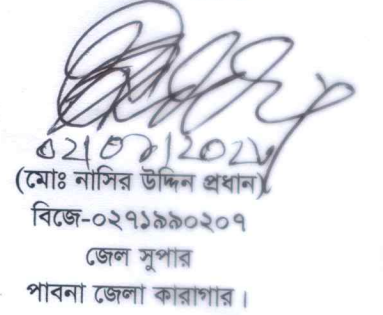 (মোঃ নাসির উদ্দিন প্রধান)
বিজে-০২৭১৯৯০২০৭
জেল সুপার
পাবনা জেলা কারাগার।